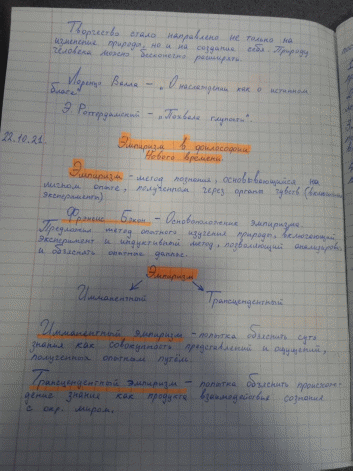 Творчество стало направлено не только на
изменение природы, но и на создание себя. Природу
человека можно бесконечно расширять.
Лоренцо Валла – „О наслаждении как о истинном
благе"
Э. Роттердамский – „Похвала глупости".
22.10.21.
Эмпиризм в философии
Нового времени
Эмпиризм – метод познания, основывающийся на
личном опыте, полученном через органы чувств
эксперимент)
Фрэнсис Бэкон – Основоположник эмпиризма.
Предложил метод опытного изучения природы, включающий
эксперимент и индуктивный метод, позволяющий анализировать
и объяснять опытные данные.
Эмпиризм
Имманентный Трансцендентный
Имманентный эмпиризм – попытка объяснить суть
знания как совокупность представлений и ощущений,
полученных опытным путём.
Трансцендентный эмпиризм – попытка объяснить происхож-
дение знание как продукта взаимодействия сознания
с окр. миром.